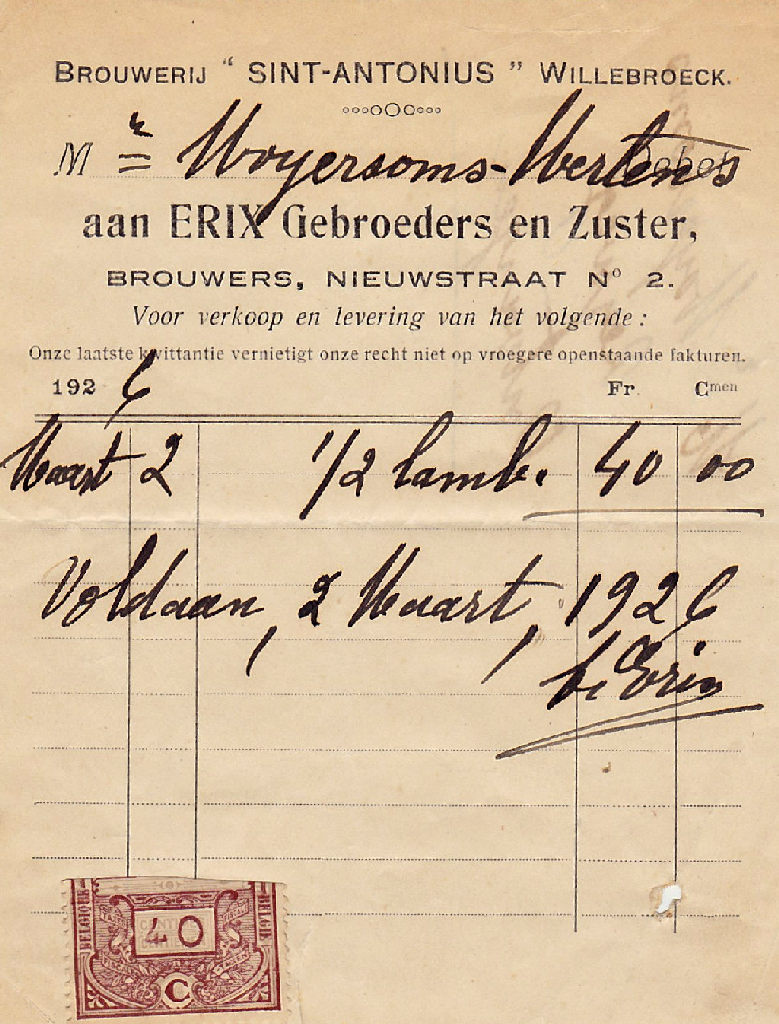 BROUWERIJ “ SINT-ANTONIUS ” WILLEBROECK.
M r Moyersoms-Mertens Debet
aan ERIX Gebroeders en Zuster,
BROUWERS, NIEUWSTRAAT No 2.
Voor verkoop en levering van het volgende :
Onze laatste kwittantie vernietigt onze recht niet op vroegere openstaande fakturen.
1926 Fr. Cmen
Maart 2 1/2 lamb. 40 00
Voldaan, 2 Maart, 1926
Erix
BELGIQUE 40 BELGIE
C